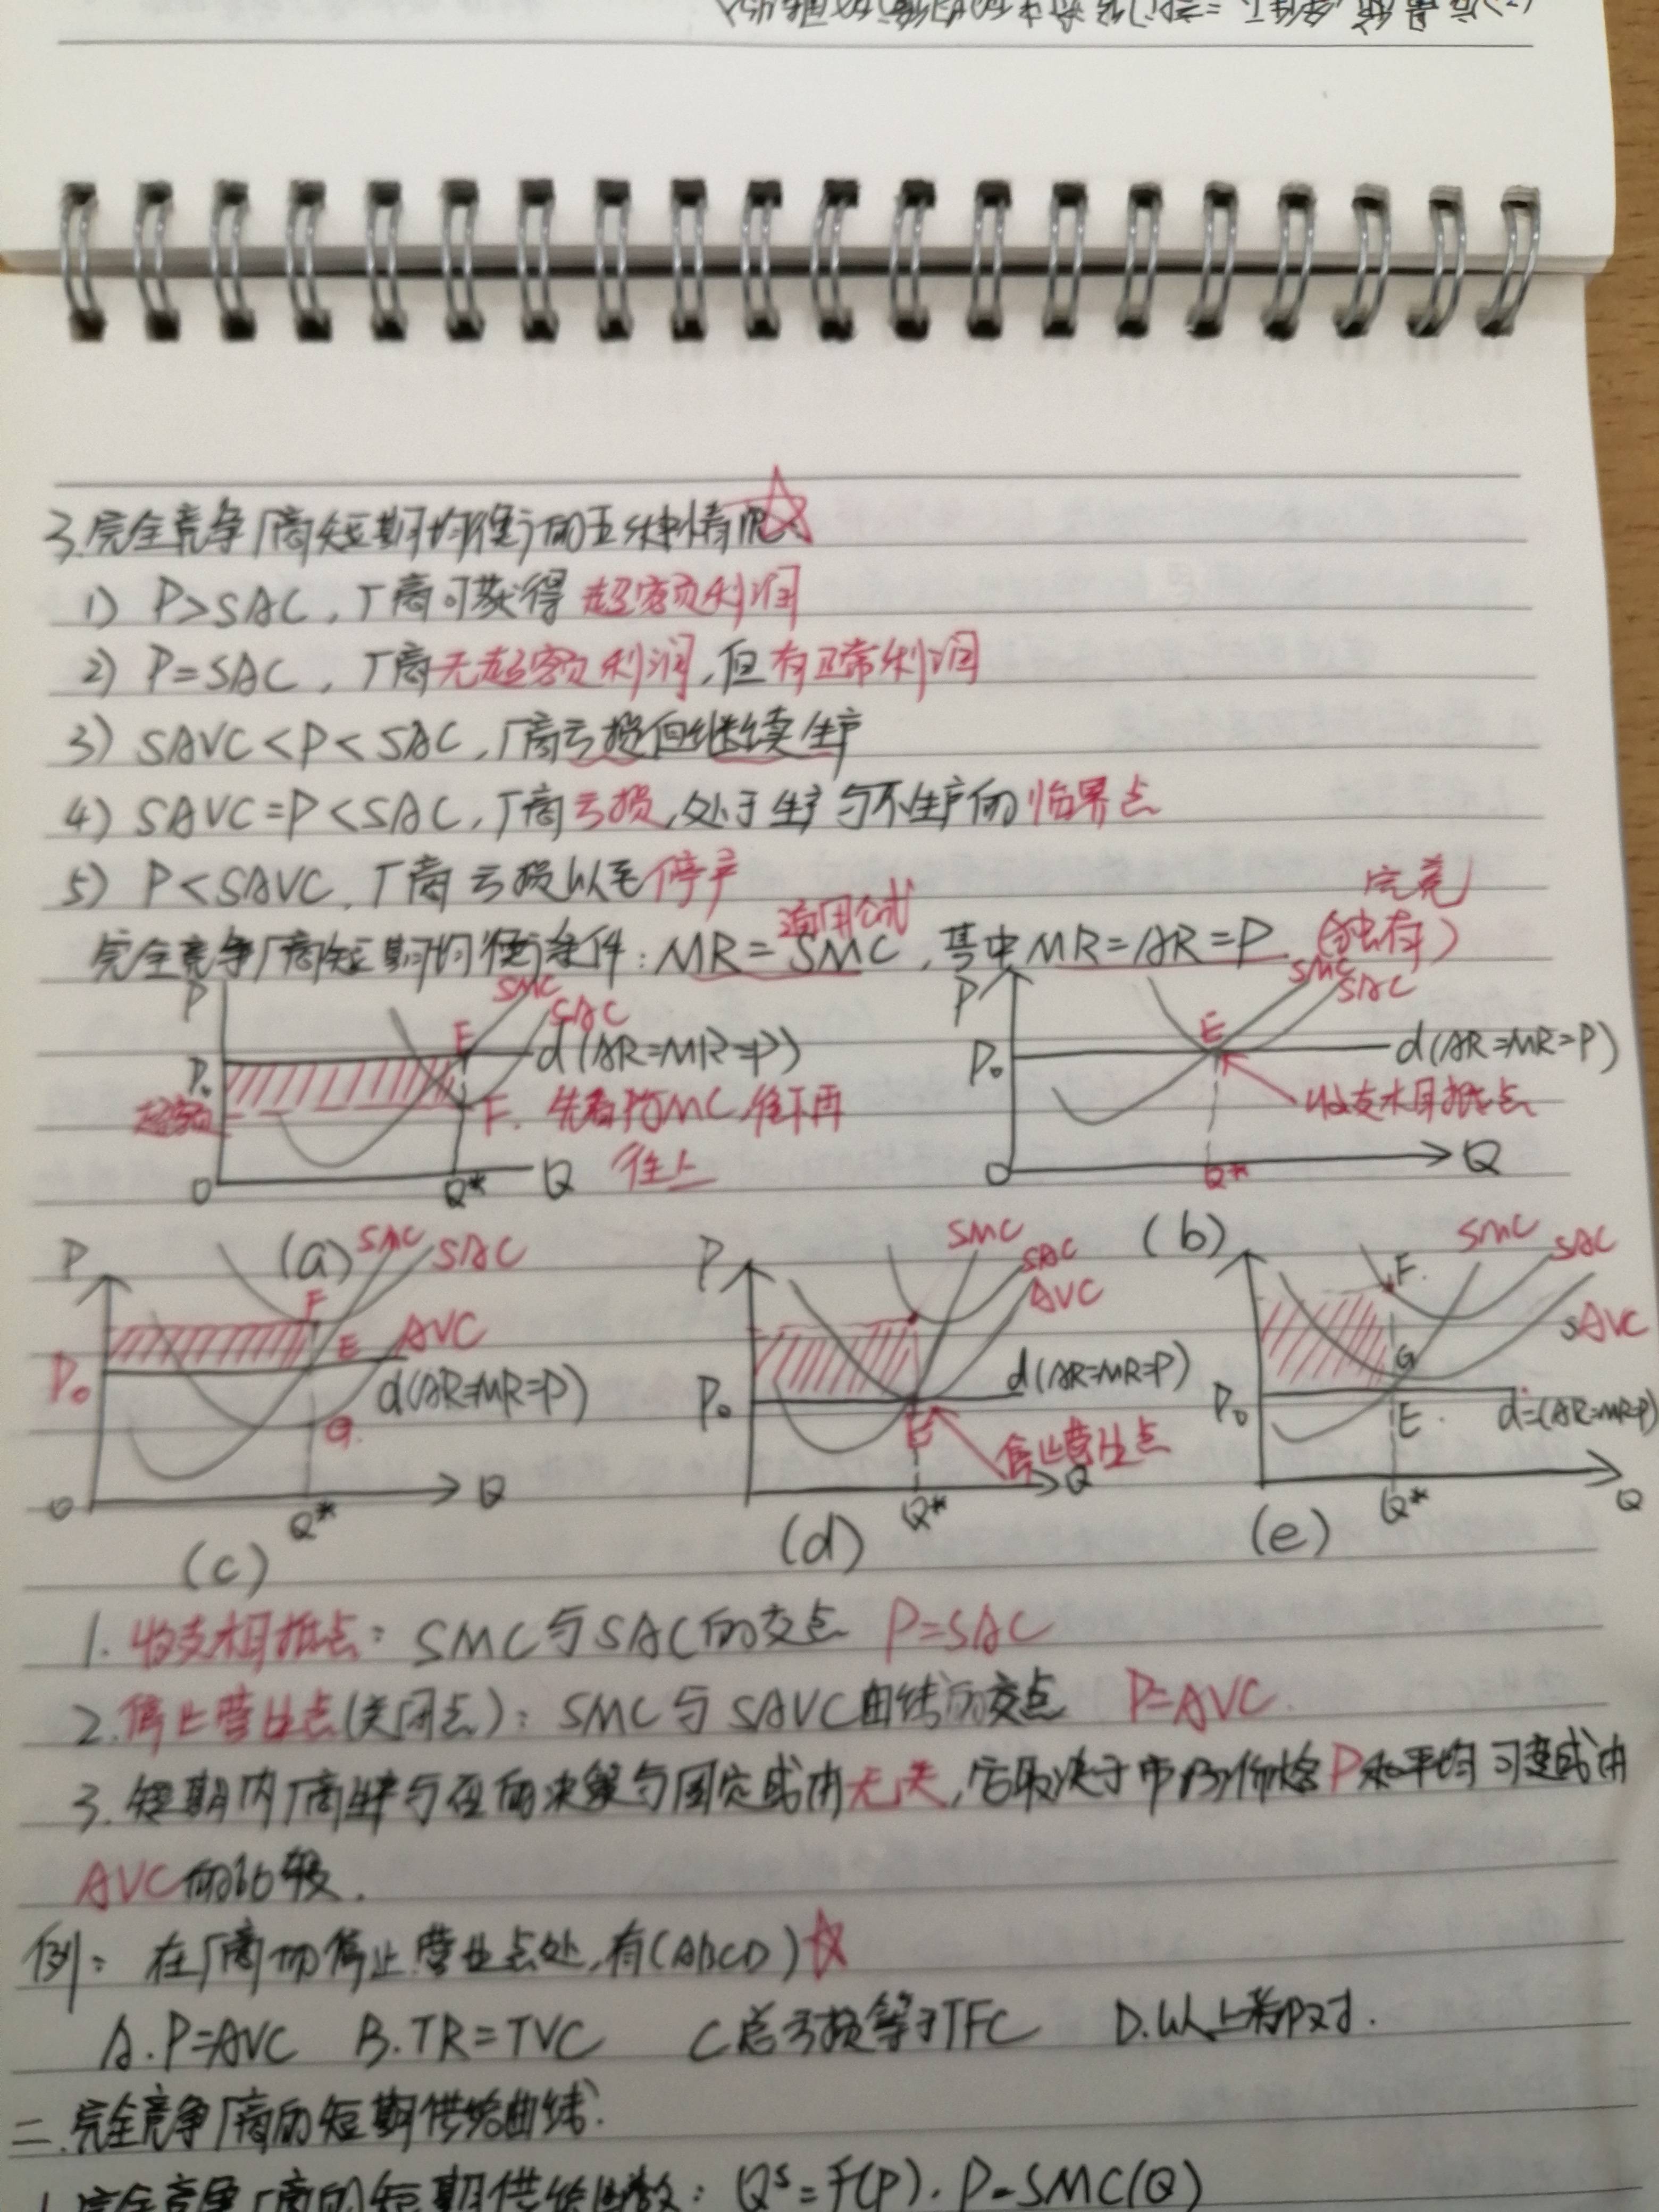 3.完全竞争厂商短期均衡的五种情况☆
1) P>SAC,厂商可获得超额利润
2) P=SAC,厂商无超额利润,但有正常利润
3) SAVC<P<SAC,厂商亏损但继续生产
4) SAVC=P<SAC,厂商亏损,处于生产与不生产的临界点
5) P<SAVC,厂商亏损以至停产
通用公式
完竞
完全竞争厂商短期均衡条件:MR=SMC,其中MR=AR=P.(独有)
P SMC SAC
E d(AR=MR=P)
P₀
超额 F. 先看P与MC,往下再
往上
O Q* Q
(a)
P SMC SAC
E d(AR=MR=P)
P₀
收支相抵点
O Q* Q
(b)
P SMC SAC
F
E AVC
P₀ d(AR=MR=P)
G
O Q* Q
(c)
P SMC SAC
AVC
d(AR=MR=P)
P₀
E 停止营业点
Q* Q
(d)
SMC SAC
F.
SAVC
G
P₀ E d=(AR=MR=P)
Q* Q
(e)
1.收支相抵点:SMC与SAC的交点 P=SAC
2.停止营业点(关闭点):SMC与SAVC曲线的交点 P=AVC.
3.短期内厂商生产与否的决策与固定成本无关,它取决于市场价格P和平均可变成本
AVC的比较.
例:在厂商的停止营业点处,有(ABCD)☆
A.P=AVC B.TR=TVC C总亏损等于TFC D.以上都对.
二.完全竞争厂商的短期供给曲线.
1.完全竞争厂商的短期供给函数:Qˢ=f(P).P=SMC(Q)